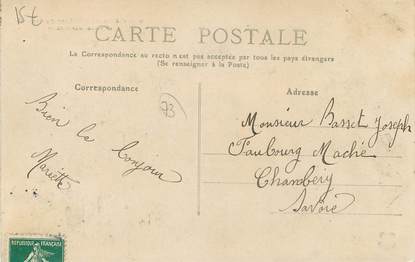 15 t
CARTE POSTALE
La Correspondance au recto n'est pas acceptée par tous les pays étrangers
(Se renseigner à la Poste)
Correspondance
73
Bien le bonjour
Mariette
Adresse
Monsieur Basset Joseph
Faubourg Maché
Chambéry
Savoie
REPUBLIQUE FRANÇAISE